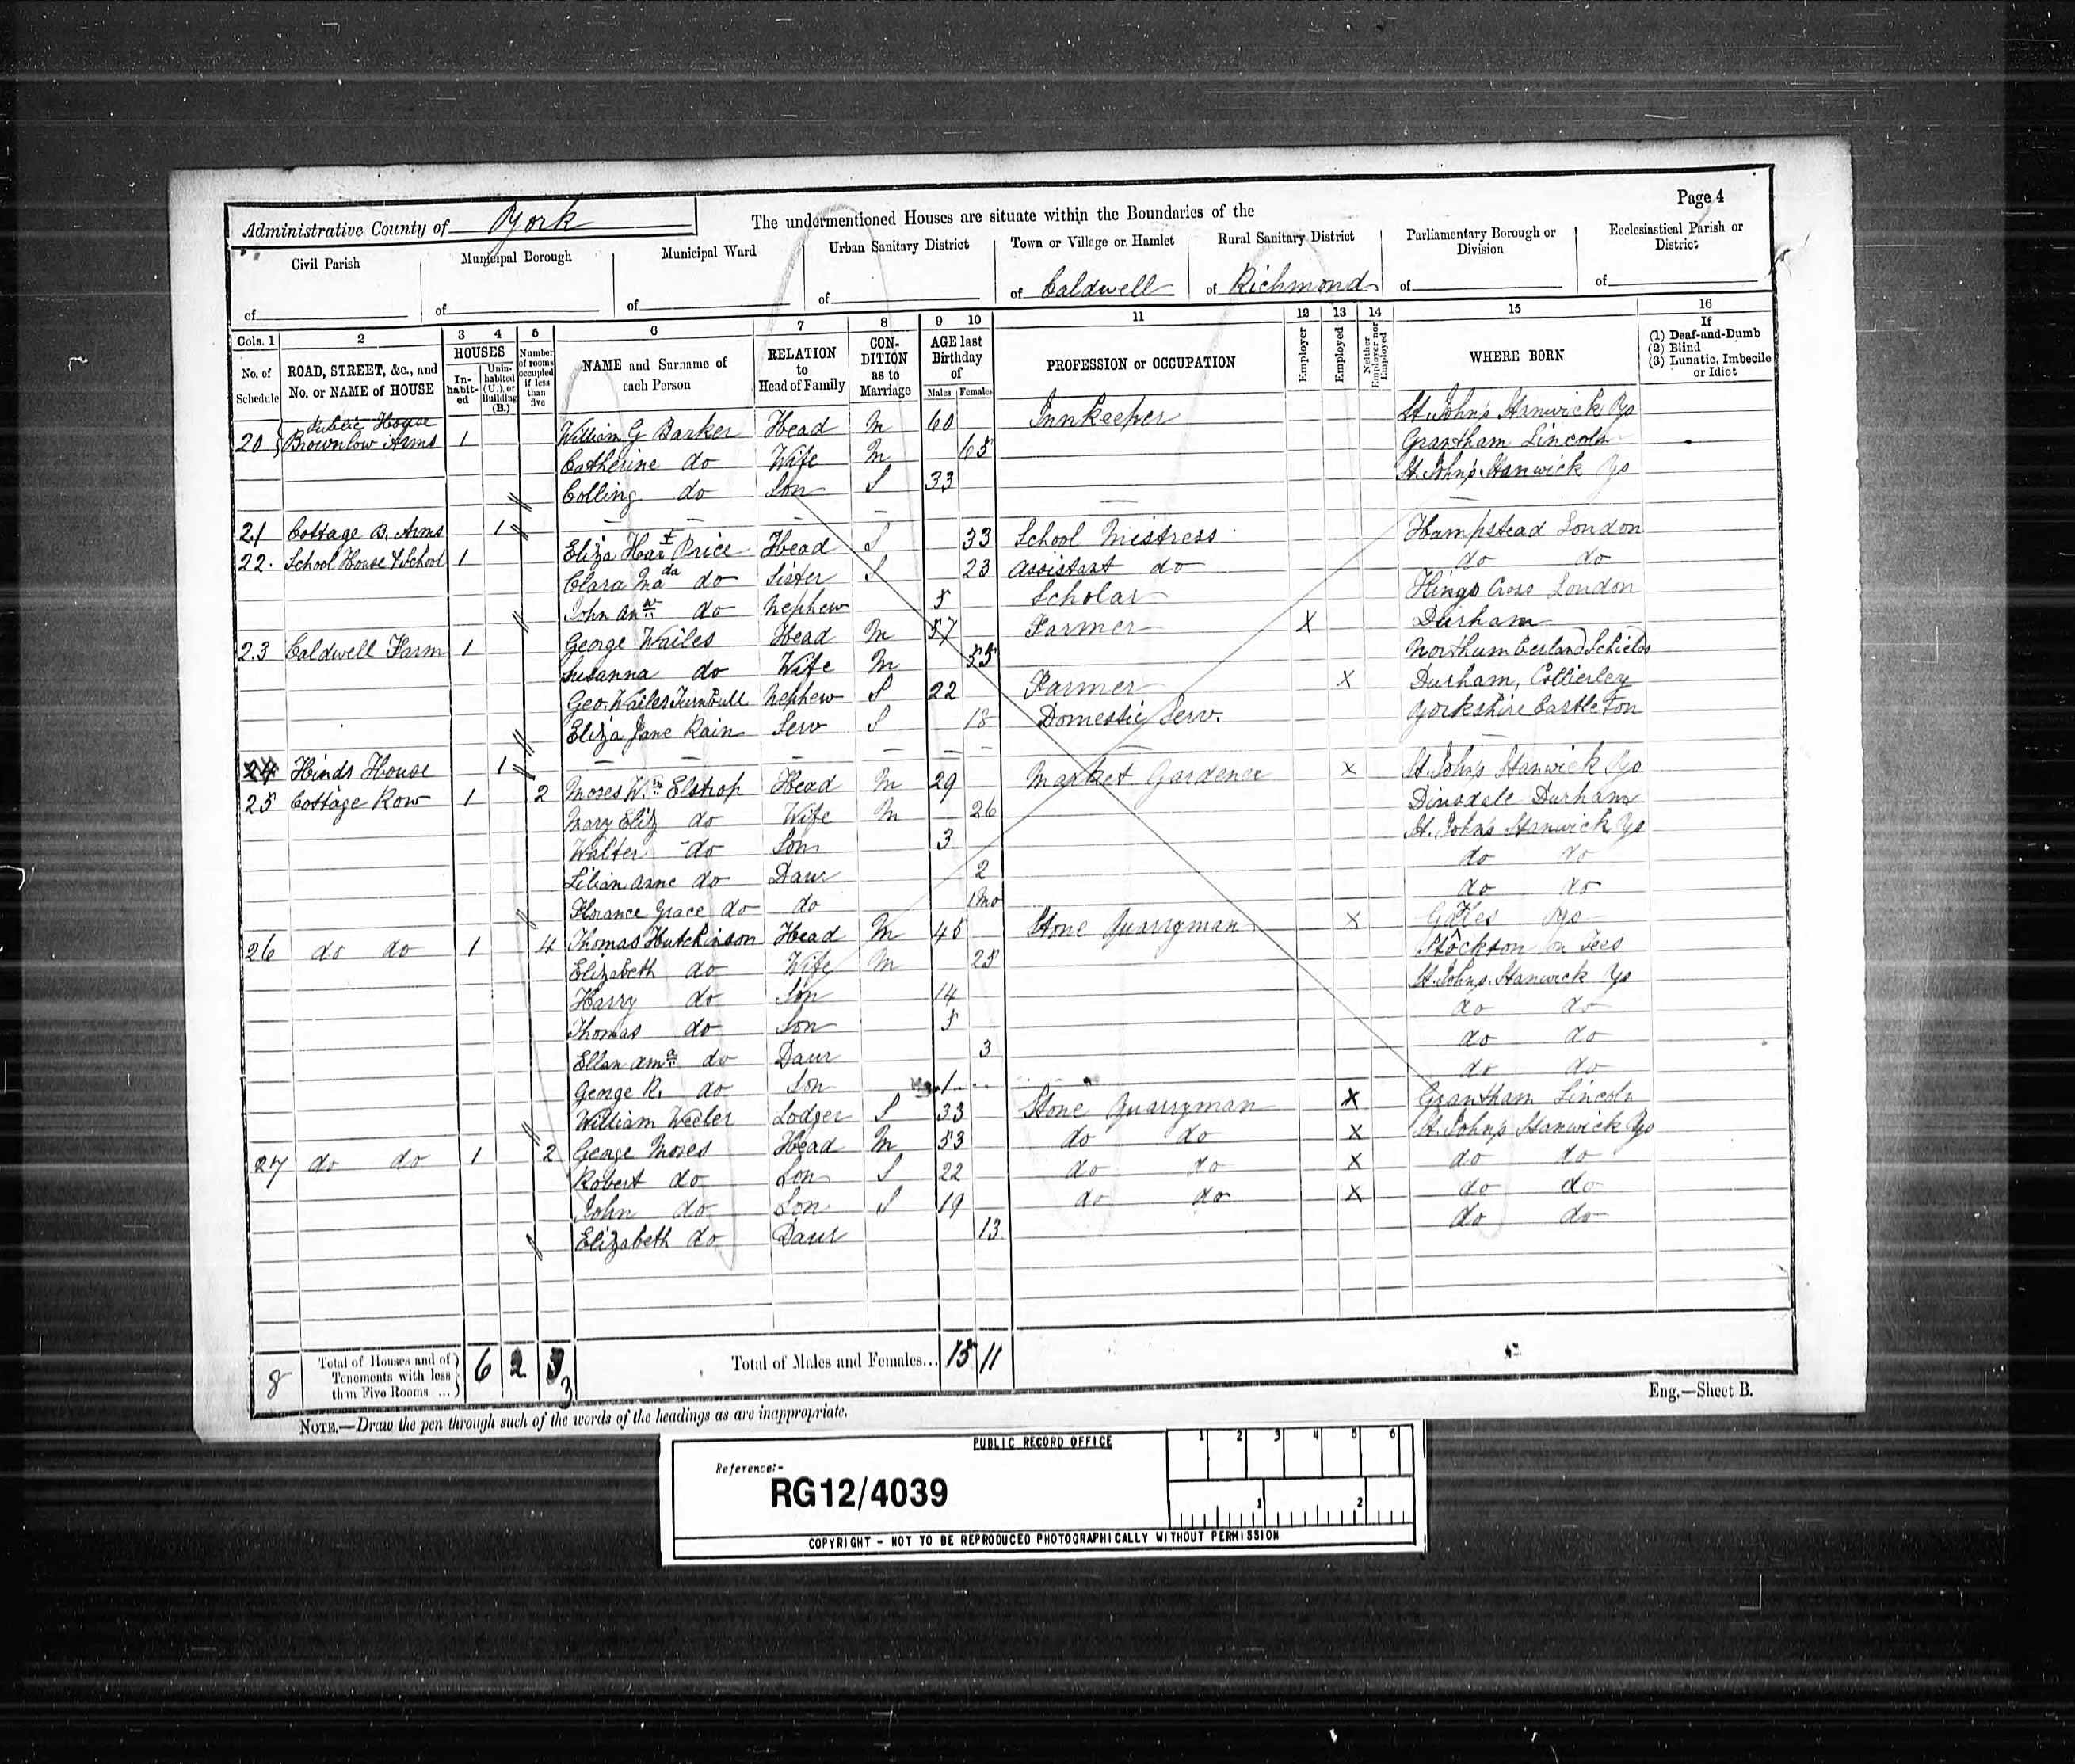 Page 4
Administrative County of York
The undermentioned Houses are situate within the Boundaries of the
Civil Parish Municipal Borough Municipal Ward Urban Sanitary District Town or Village or Hamlet Rural Sanitary District Parliamentary Borough or Division Ecclesiastical Parish or District
of of of of of Caldwell of Richmond of of
Cols. 1 2 3 4 5 6 7 8 9 10 11 12 13 14 15 16
No. of Schedule ROAD, STREET, &c., and No. or NAME of HOUSE HOUSES Inhabited Uninhabited (U.), or Building (B.) Number of rooms occupied if less than five NAME and Surname of each Person RELATION to Head of Family CONDITION as to Marriage AGE last Birthday of Males Females PROFESSION or OCCUPATION Employer Employed Neither Employer nor Employed WHERE BORN If (1) Deaf-and-Dumb (2) Blind (3) Lunatic, Imbecile or Idiot
20 Public House Brownlow Arms 1 William G Barker Head M 60 Innkeeper St. John's Stanwick Yo
Catherine do Wife M 65 Grantham Lincoln
Colling do Son S 33 St. John's Stanwick Yo
21 Cottage B. Arms 1 — — — — — —
22. School House & School 1 Eliza Hart Price Head S 33 School Mistress Hampstead London
Clara Mada do Sister S 23 Assistant do do do
John do Nephew 5 Scholar Kings Cross London
23 Caldwell Farm 1 George Wailes Head M 57 Farmer X Durham
Susanna do Wife M 55 Northumberland Schields
Geo. Wailes Turnbull Nephew S 22 Farmer X Durham, Collierley
Eliza Jane Rain Serv S 18 Domestic Serv. Yorkshire Castleton
24 Hinds House 1 — — — — — — —
25 Cottage Row 1 2 Moses Wm Elstrop Head M 29 Market Gardener X St. John's Stanwick Yo
Mary Eliz do Wife M 26 Dinsdale Durham
Walter do Son 3 St. John's Stanwick Yo
Lilian Anne do Daur 2 do do
Florance Grace do do 1 Mo do do
26 do do 1 4 Thomas Hutchinson Head M 45 Stone Quarryman X Gales Yo
Elizabeth do Wife M 25 Stockton on Tees
Harry do Son 14 St. John's Stanwick Yo
Thomas do Son 5 do do
Ellan Ama do Daur 3 do do
George R. do Son 1 do do
William Weeler Lodger S 33 Stone Quarryman X Grantham Lincoln
27 do do 1 2 George Moses Head M 53 do do X St. John's Stanwick Yo
Robert do Son S 22 do do X do do
John do Son S 19 do do X do do
Elizabeth do Daur 13 do do
8 Total of Houses and of Tenements with less than Five Rooms ... 6 2 3 Total of Males and Females... 15 11
Eng.—Sheet B.
NOTE.—Draw the pen through such of the words of the headings as are inappropriate.
PUBLIC RECORD OFFICE
1 2 3 4 5 6
Reference:-
RG12/4039
1 2
COPYRIGHT - NOT TO BE REPRODUCED PHOTOGRAPHICALLY WITHOUT PERMISSION